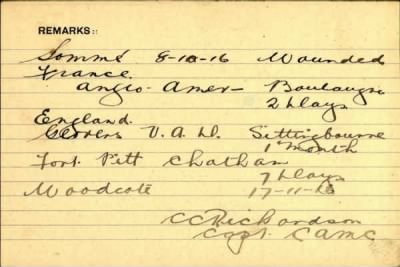 REMARKS::
Somme 8-10-16 Wounded
France.
Anglo-Amer- Boulogne
2 days
England.
V.A.D. Sittingbourne
1 Month
Fort Pitt Chatham
7 days
Woodcote 17-11-16
CC Richardson
Capt. CAMC